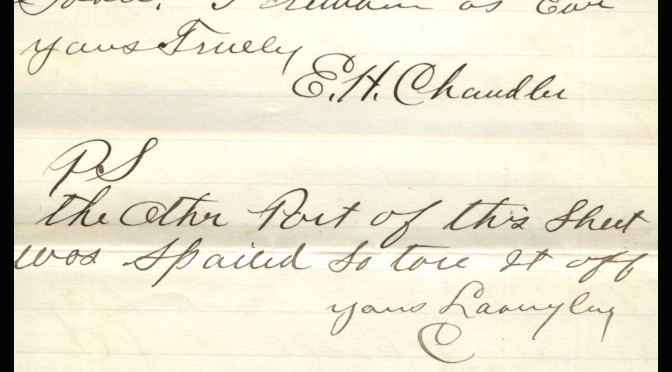 I remain as Ever
yours Truely
E. H. Chandler
PS
the other Part of this Sheet
was Spailed So tore it off
yours
C